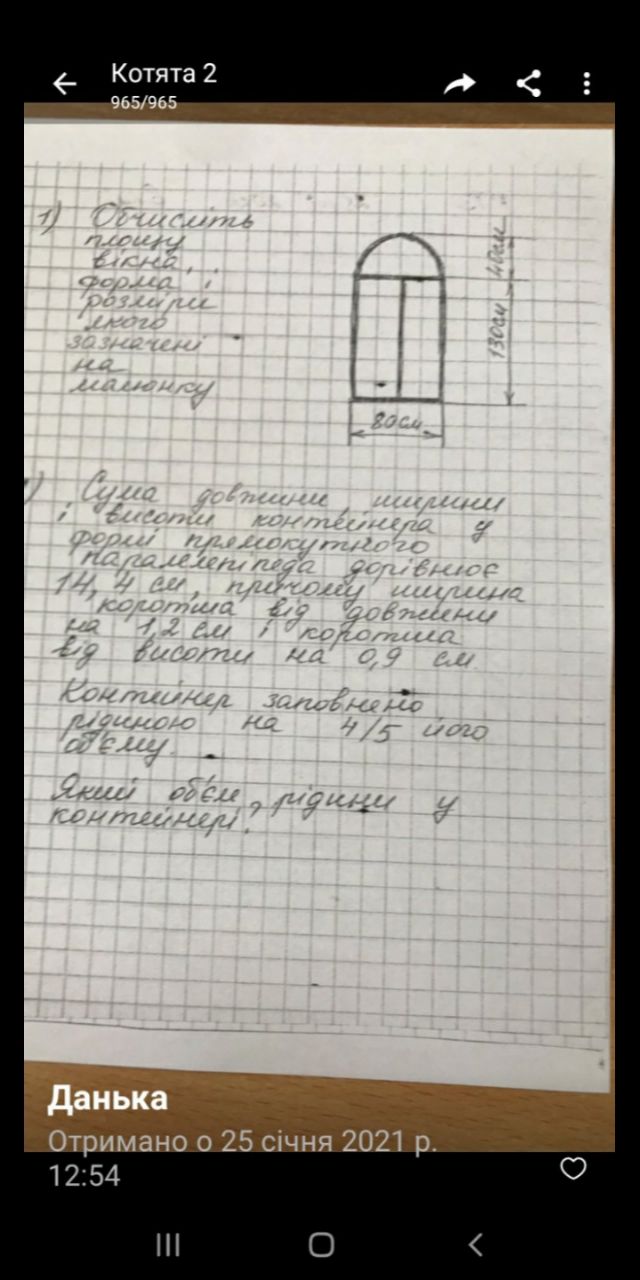 Котята 2
965/965
1) Обчисліть
площу
вікна,
форма і
розміри
якого
зазначені
на
малюнку
40см
130см
80см
) Сума довжини, ширини
і висоти контейнера у
формі прямокутного
паралелепіпеда дорівнює
14,4 см, причому ширина
коротша від довжини
на 1,2 см і коротша
від висоти на 0,9 см.
Контейнер заповнено
рідиною на 4/5 його
об'єму.
Який об'єм рідини у
контейнері?
Данька
Отримано о 25 січня 2021 р.
12:54